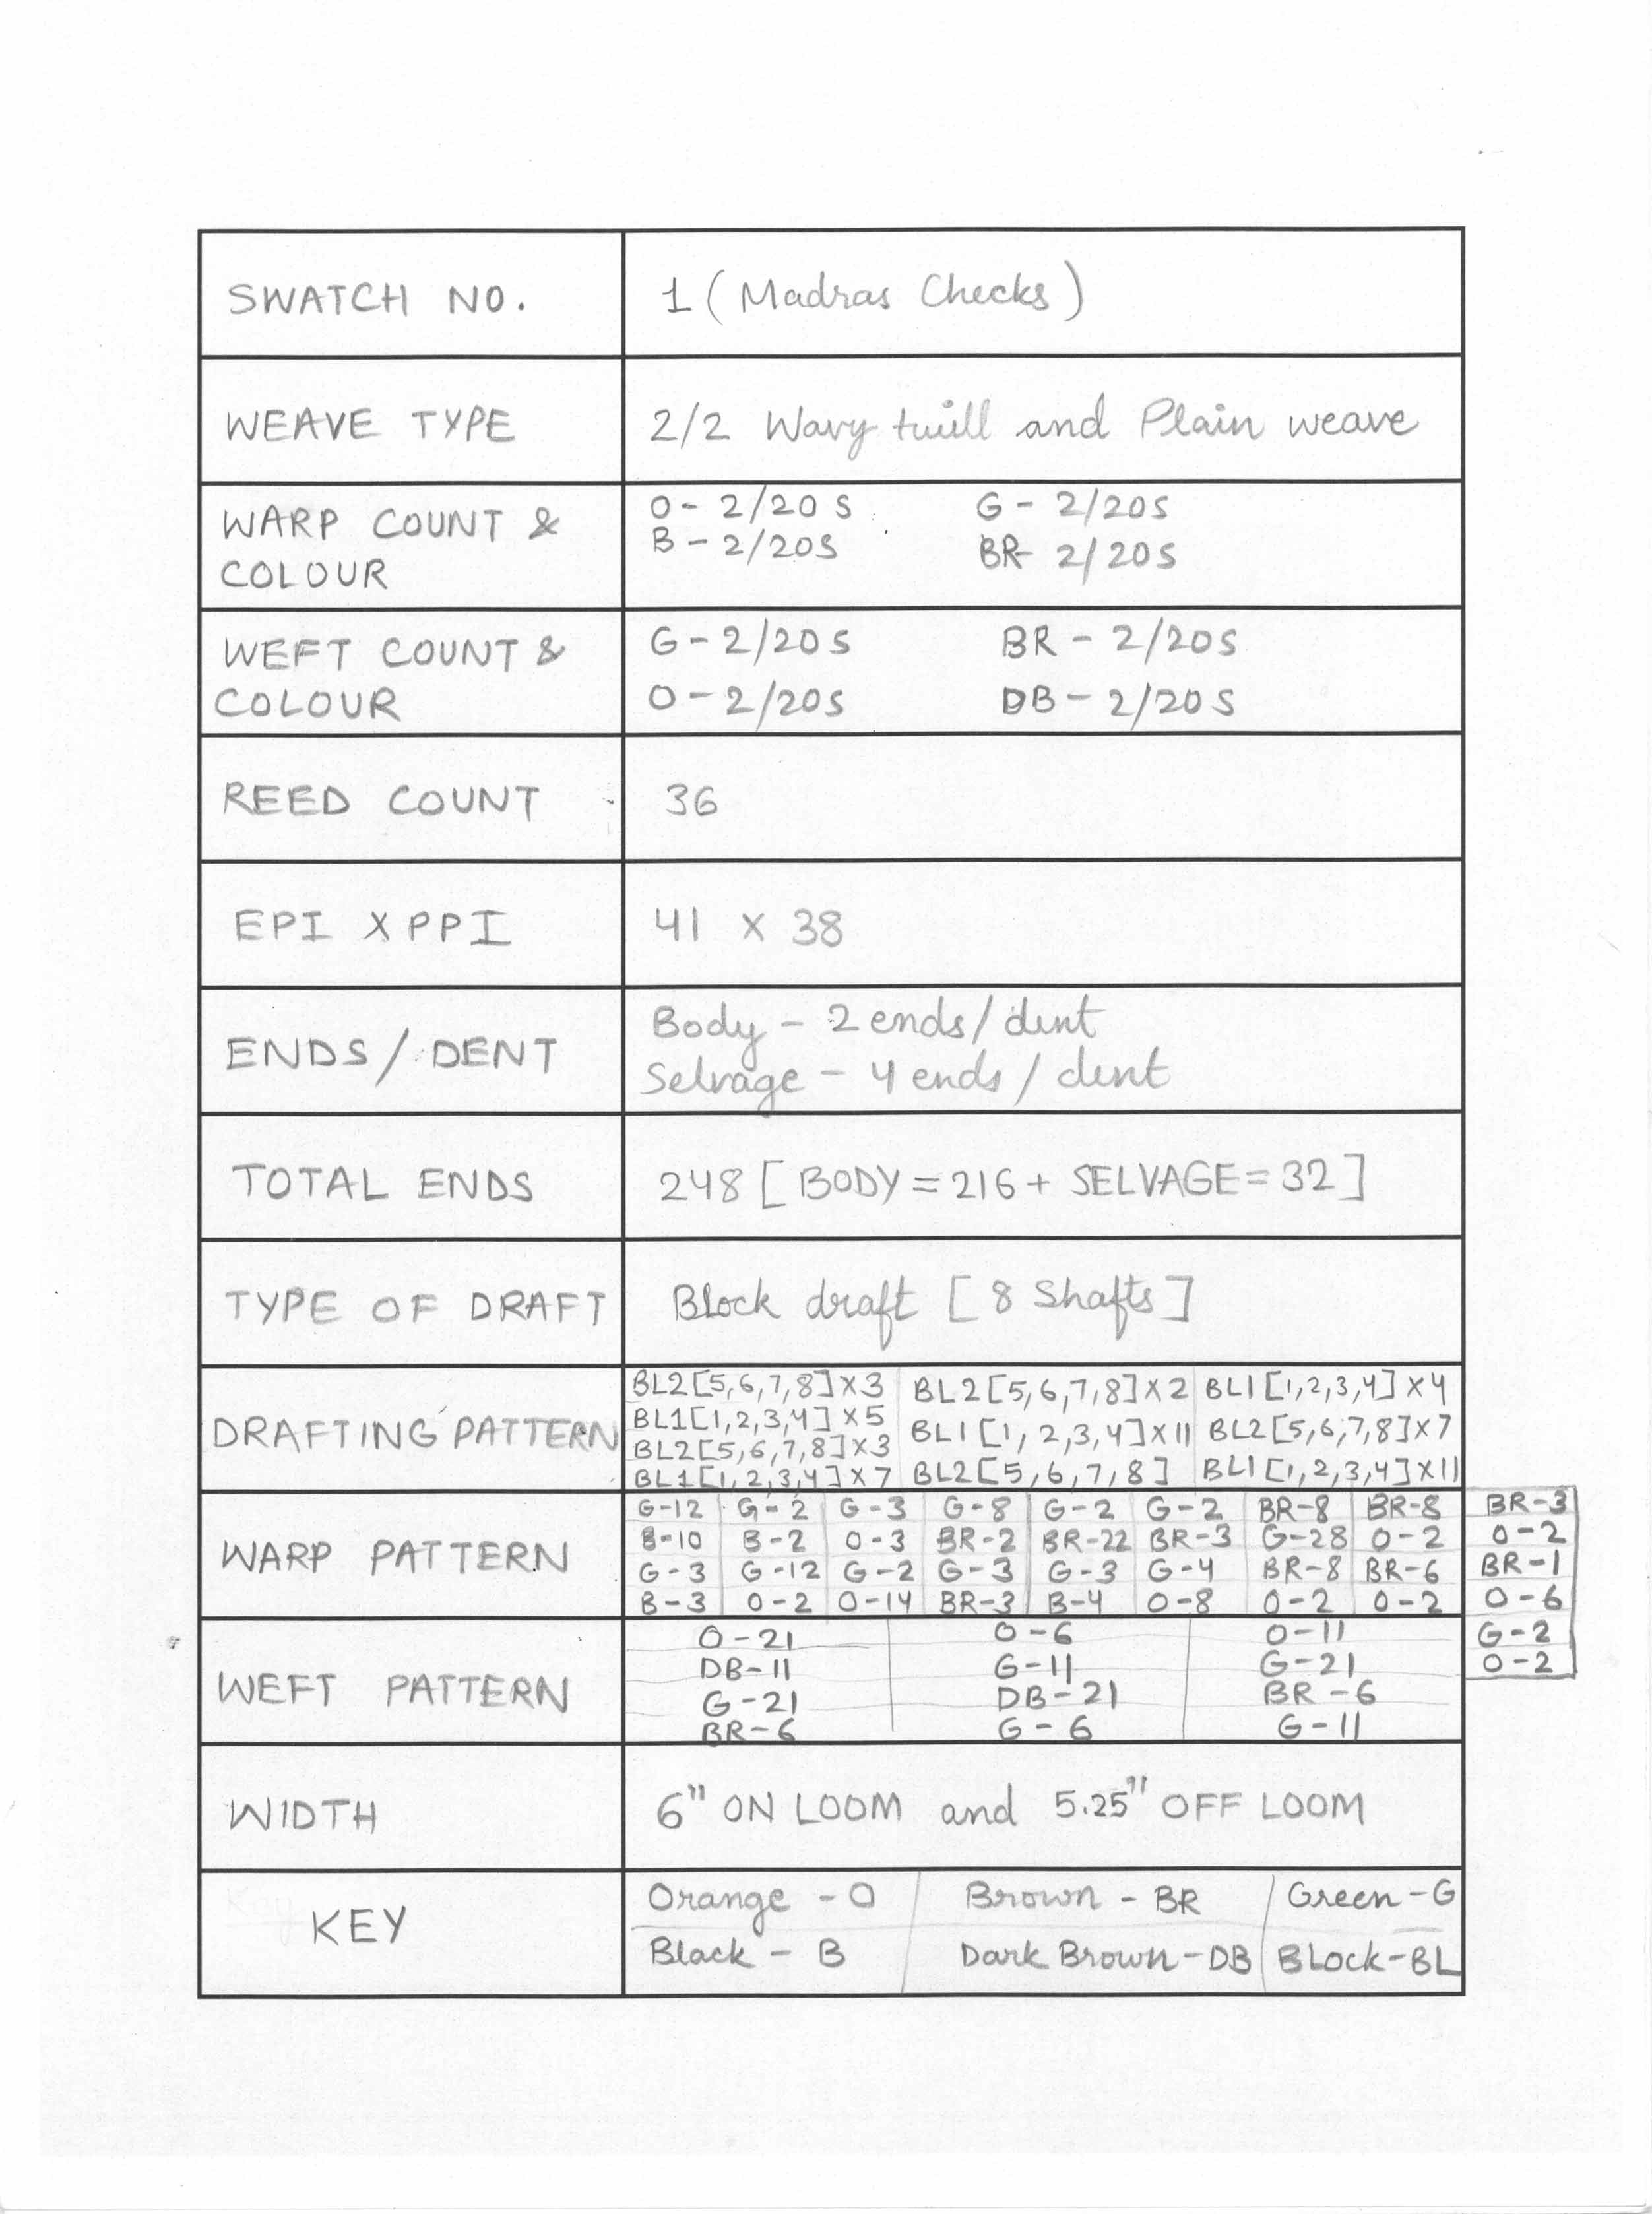 SWATCH NO.
1 (Madras Checks)
WEAVE TYPE
2/2 Wavy twill and Plain weave
WARP COUNT &
COLOUR
O- 2/20 S G - 2/20S
B - 2/20S BR- 2/20S
WEFT COUNT &
COLOUR
G - 2/20S BR - 2/20S
O - 2/20S DB - 2/20S
REED COUNT
36
EPI X PPI
41 X 38
ENDS / DENT
Body - 2 ends/dent
Selvage - 4 ends / dent
TOTAL ENDS
248 [ BODY = 216 + SELVAGE = 32 ]
TYPE OF DRAFT
Block draft [ 8 Shafts ]
DRAFTING PATTERN
BL2[5,6,7,8]X3 BL2[5,6,7,8]X2 BL1[1,2,3,4]X4
BL1[1,2,3,4]X5 BL1[1,2,3,4]X11 BL2[5,6,7,8]X7
BL2[5,6,7,8]X3
BL1[1,2,3,4]X7 BL2[5,6,7,8] BL1[1,2,3,4]X11
WARP PATTERN
G-12 G-2 G-3 G-8 G-2 G-2 BR-8 BR-8 BR-3
B-10 B-2 O-3 BR-2 BR-22 BR-3 G-28 O-2 O-2
G-3 G-12 G-2 G-3 G-3 G-4 BR-8 BR-6 BR-1
B-3 O-2 O-14 BR-3 B-4 O-8 O-2 O-2 O-6
G-2
O-2
WEFT PATTERN
O-21 O-6 O-11
DB-11 G-11 G-21
G-21 DB-21 BR-6
BR-6 G-6 G-11
WIDTH
6" ON LOOM and 5.25" OFF LOOM
KEY
Orange - O Brown - BR Green - G
Black - B Dark Brown - DB Block - BL